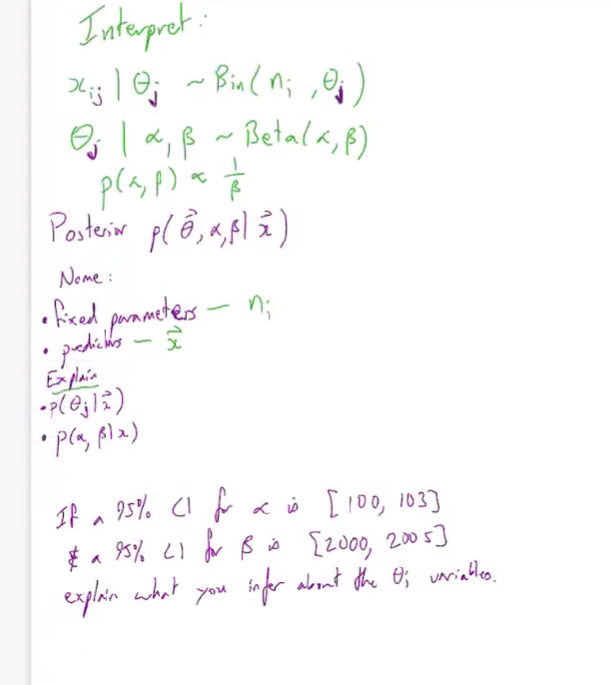 Interpret:
x_ij | θ_j ~ Bin(n_i, θ_j)
θ_j | α, β ~ Beta(α, β)
p(α, β) ∝ 1/β
Posterior p(θ⃗, α, β | x⃗)
Name:
• fixed parameters — n_i
• predictors — x⃗
Explain
• p(θ_j | x⃗)
• p(α, β | x)
If a 95% CI for α is [100, 103]
& a 95% CI for β is [2000, 2005]
explain what you infer about the θ_i variables.